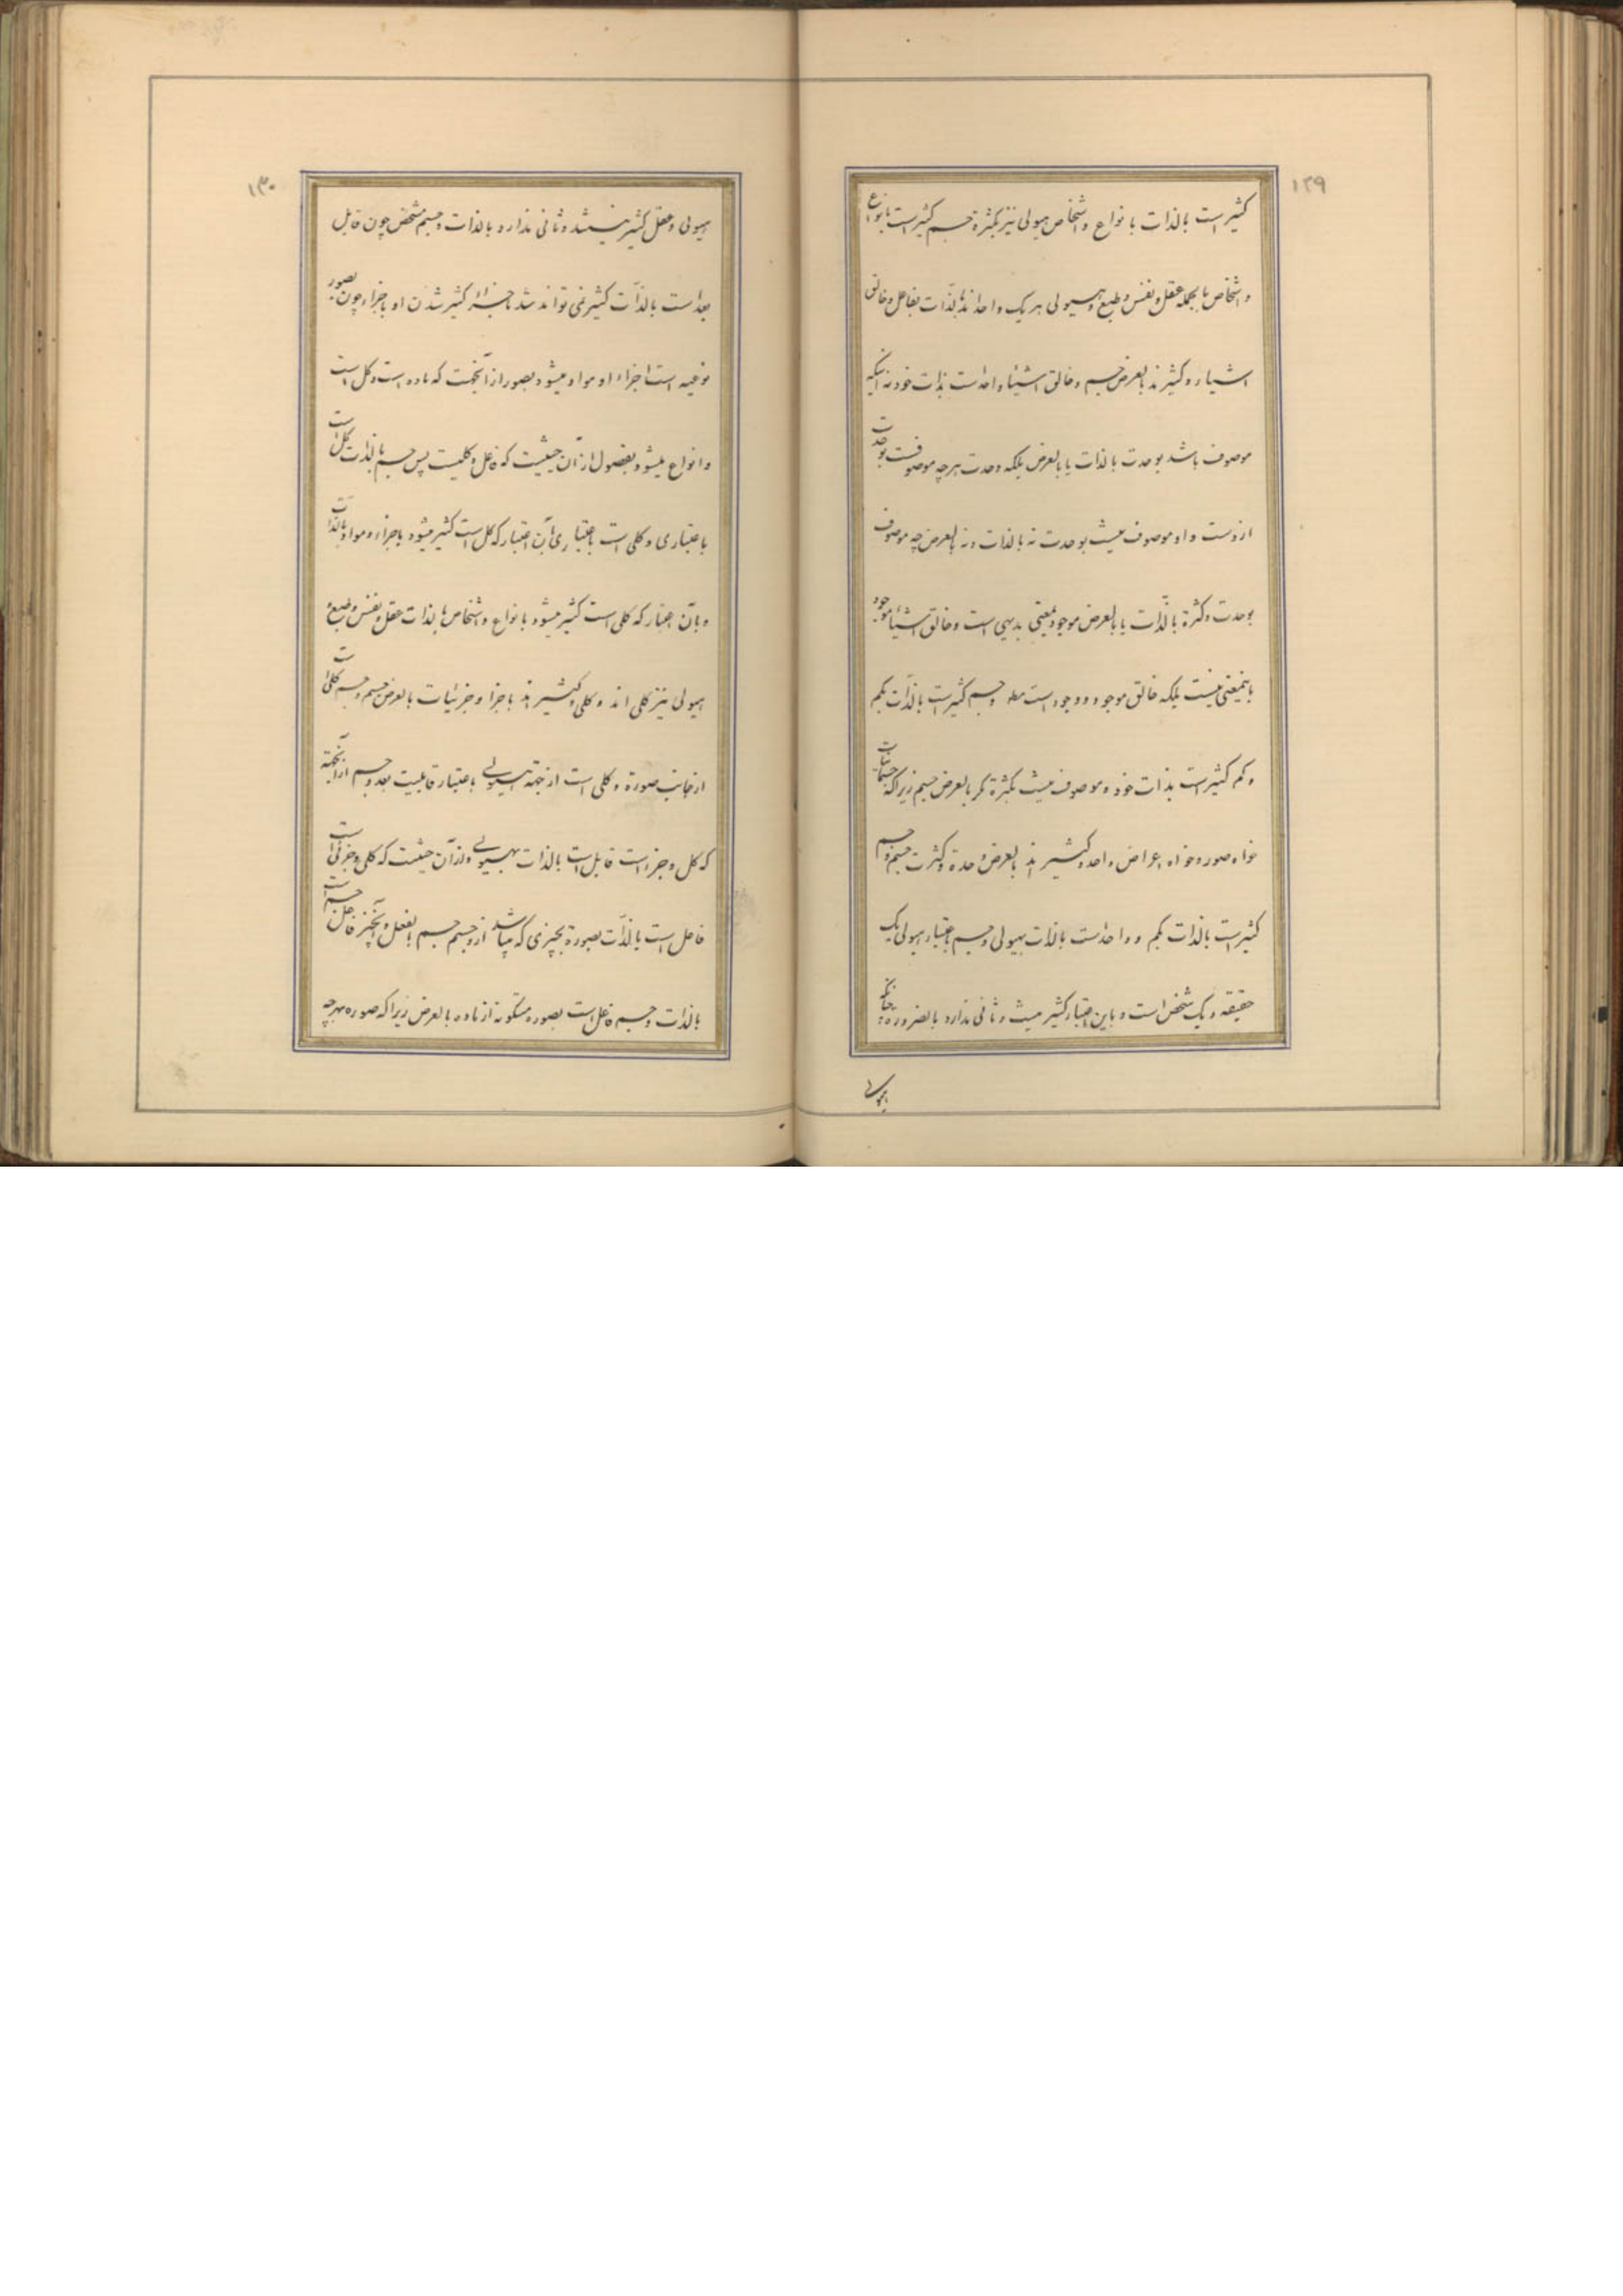 ۱۲۹
کثیر است بالذات بانواع و اشخاص هیولی نیز بکثرة جسم کثیر است بانواع
و اشخاص بالجمله عقل و نفس و طبع و هیولی هر یک واحد اند بالذات بفاعل و خالق
اشیاء و کثیرند بالعرض جسم و خالق اشیاء واحد است بذات خود نه اینکه
موصوف باشد بوحدت بالذات یا بالعرض بلکه وحدت هر چه موصوفست بوحدت
ازوست و او موصوف نیست بوحدت نه بالذات و نه بالعرض چه موصوف
بوحدت و کثرة بالذات یا بالعرض موجود بمعنی بدیهی است و خالق اشیاء موجود
باینمعنی نیست بلکه خالق موجود و وجود است مطه و جسم کثیر است بالذات بکم
و کم کثیر است بذات خود و موصوف نیست بکثرة مگر بالعرض جسم زیرا که جسمانیات
خواه صور و خواه اعراض واحد و کثیرند بالعرض وحدة و کثرت جسم و جسم
کثیر است بالذات بکم و واحد است بالذات بهیولی و جسم باعتبار هیولی یک
حقیقه و یک شخص است و باین اعتبار کثیر نیست و ثانی ندارد بالضروره چنانکه
هیولی
۱۳۰
هیولی و عقل کثیر نیستند و ثانی ندارد بالذات و جسم مشخص چون قابل
بعد است بالذات کثیر نمی تواند شد باجزاء کثیر شدن او باجزاء چون بصور
نوعیه است اجزاء او مواد میشود بصور از آنجهت که ماده است و کل است
و انواع میشود بفصول از آن حیثیت که فاعل و کلیست پس جسم بالذات کل است
باعتباری و کلی است باعتباری بآن اعتبار که کل است کثیر میشود باجزاء و مواد بالذات
و بآن اعتبار که کلی است کثیر میشود بانواع و اشخاص بالذات عقل و نفس و طبع و
هیولی نیز کلی اند و کلی و کثیرند باجزا و جزئیات بالعرض جسم و جسم کلی است
از جانب صورة و کلی است از جهة هیولی باعتبار قابلیت بعد و جسم از آنجهة
که کل و جزء است قابل است بالذات بهیولی و از آن حیثیت که کلی و جزئی است
فاعل است بالذات بصورة بچیزی که میباشد از و جسم جسم بالفعل و آنچیز فاعل جسم است
بالذات و جسم فاعل است بصوره متکونه از ماده بالعرض زیرا که صوره بهرچه